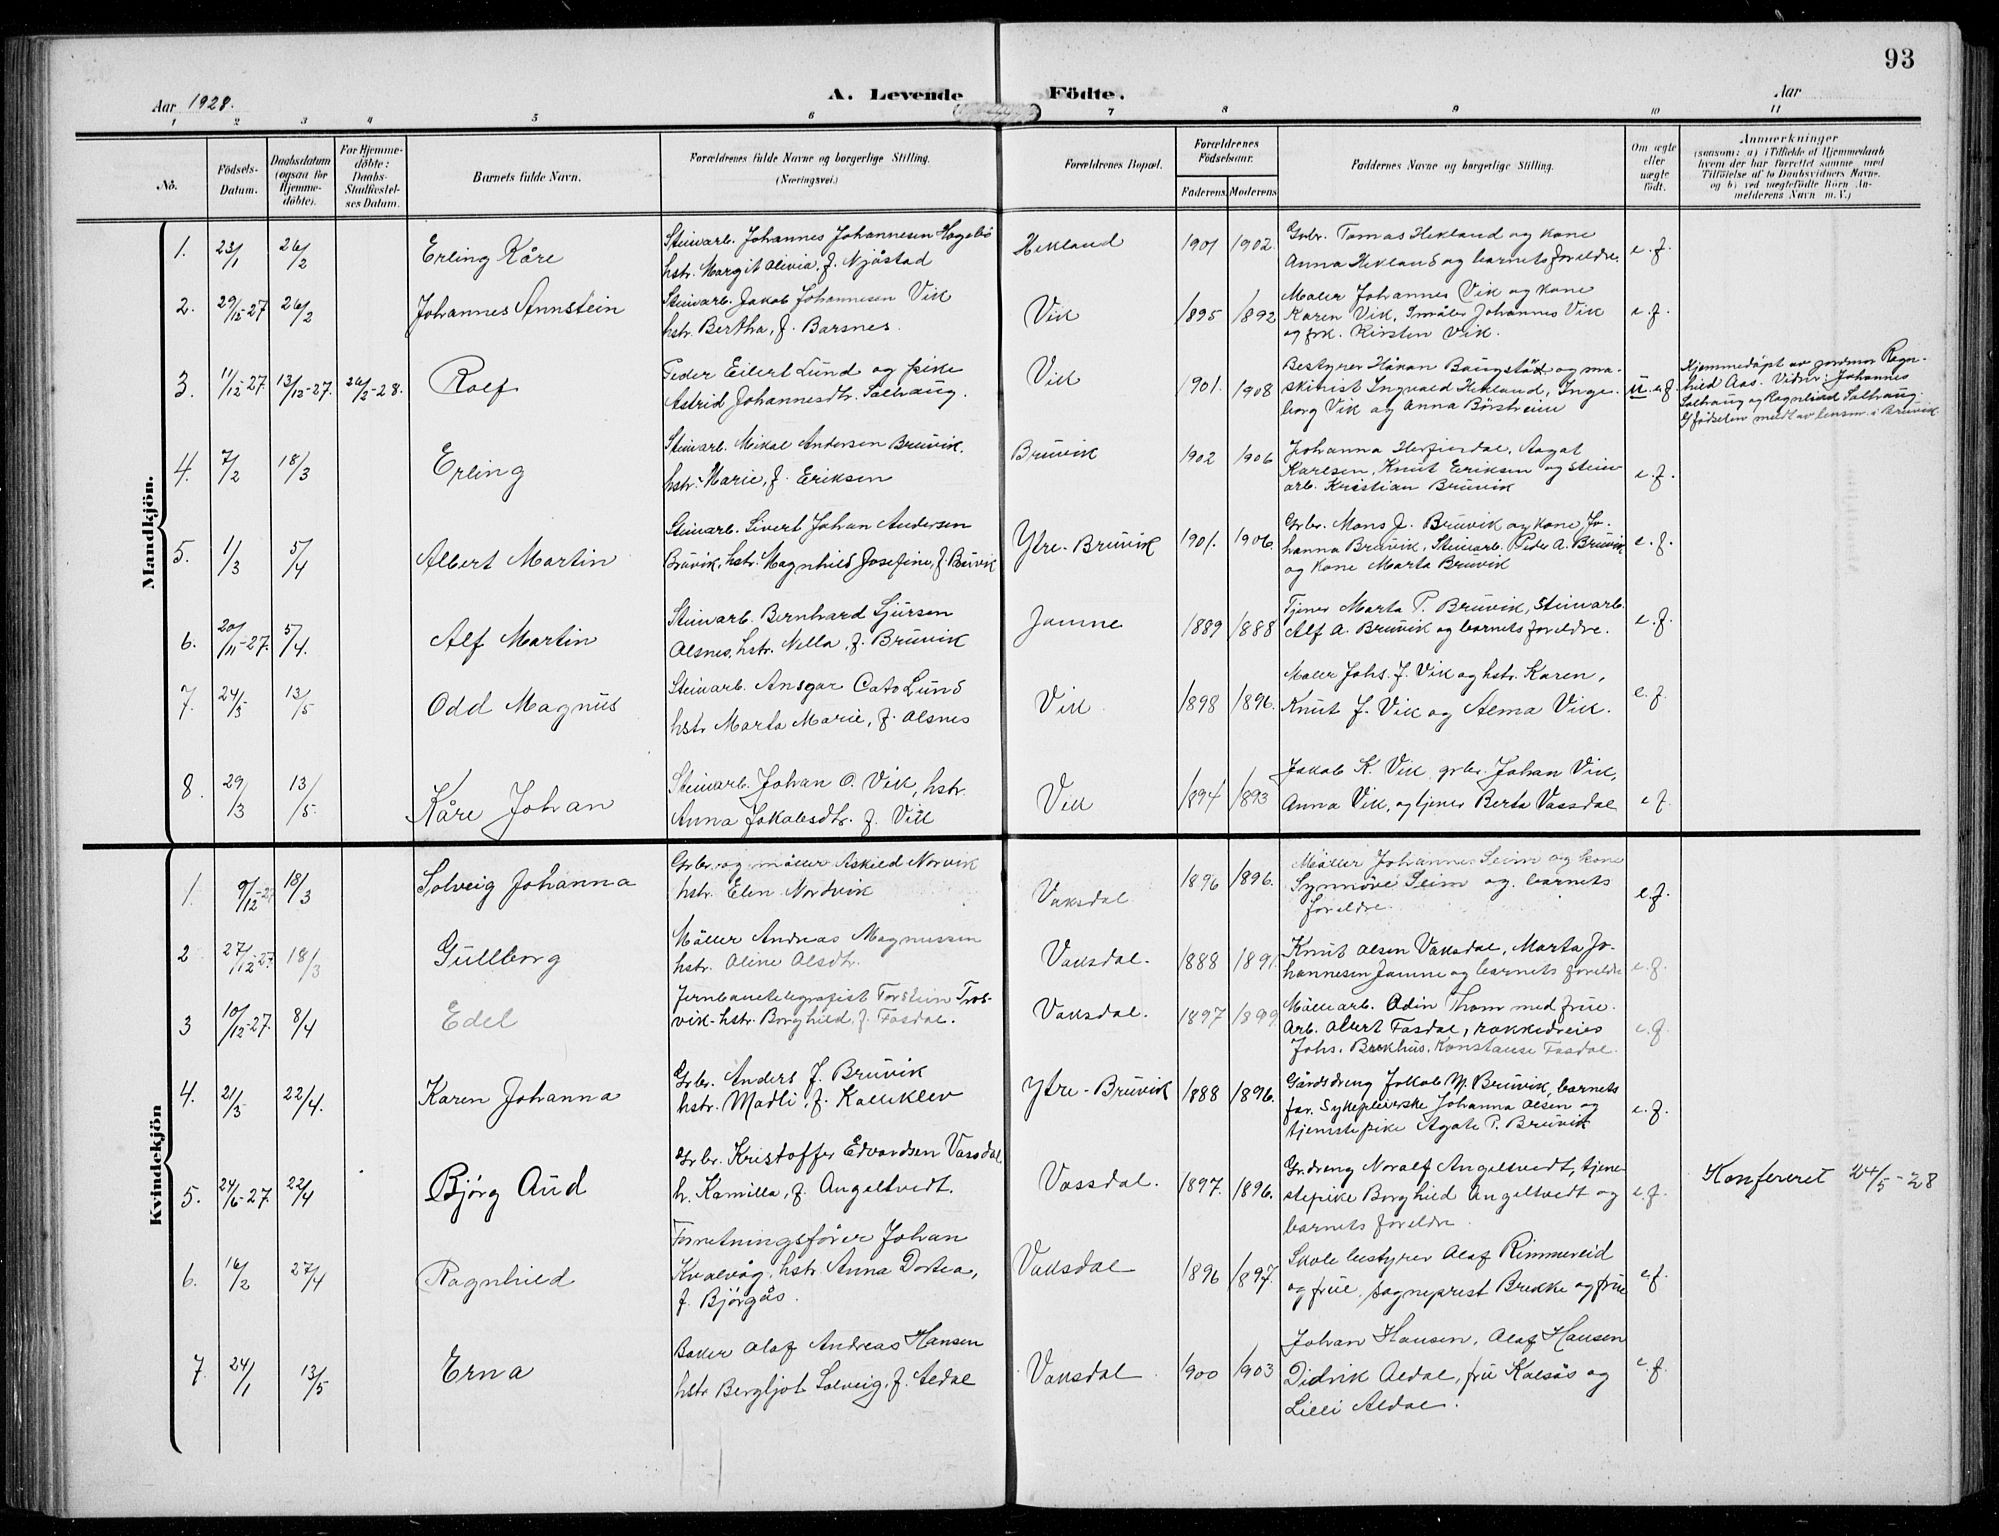 93
Aar 1928.
A. Levende
Födte.
Aar
1 2 3 4 5 6 7 8 9 10 11
No.
Födsels-
Datum.
Daabsdatum
(ogsaa for
Hjemme-
döbte).
For Hjemme-
döbte:
Daabs-
Stadfæstel-
ses Datum.
Barnets fulde Navn.
Forældrenes fulde Navne og borgerlige Stilling.
(Næringsvei.)
Forældrenes Bopæl.
Forældrenes
Födselsaar.
Faderens. Moderens.
Faddernes Navne og borgerlige Stilling.
Om ægte
eller
uægte
födt.
Anmærkninger
(saasom: a) i Tilfælde af Hjemmedaab
hvem der har forrettet samme, med
Tilföielse af to Daabsvidners Navne,
og b) ved uægtefödte Börn An-
melderens Navn m. V.)
Mandkjön.
1. 23/1 26/2 Erling Kåre
Steinarb. Johannes Johannesen Hagebö
hstr. Margit Olivia, f. Njåstad
Hekland 1901 1902.
Grbr. Tomas Hekland og kone
Anna Hekland og barnets foreldre.
e.f.
2. 29/12-27 26/2 Johannes Annstein
Steinarb. Jakob Johannesen Vik
hstr. Bertha, f. Barsnes.
Vik 1895 1892
Maler Johannes Vik og kone
Karen Vik, Johannes Vik
og frk. Kirsten Vik.
e.f.
3. 11/12-27. 13/12-27. 26/2-28. Rolf
Peder Eilert Lund og pike
Astrid Johannesdtr. Salhaug.
Vik 1901. 1908
Bestyrer Håkon Baugstad og ma-
skinist Ingvald Hekland, Inge-
borg Vik og Anna Börsheim
u. e.f.
Hjemmedøpt av jordmor Ragn-
hild Aas. Vidner: Johannes
Salhaug og Ragnhild Salhaug.
Fødselen meldt av lensm. i Bruvik
4. 7/2 18/3 Erling
Steinarb. Mikal Andersen Bruvik.
hstr. Marie, f. Eriksen
Bruvik 1902 1906
Johanna Herfindal, Aagot
Karlsen, Knut Eriksen og stein
arb. Kristian Bruvik
e.f.
5. 1/3 5/4 Albert Martin
Steinarb. Sivert Johan Andersen
Bruvik, hstr. Magnhild Josefine, f. Bruvik
Ytre-Bruvik 1901. 1906.
Grbr. Mons J. Bruvik og kone Jo-
hanna Bruvik, Steinarb. Peder A. Bruvik
og kone Marta Bruvik
e.f.
6. 20/11-27. 5/4. Alf Martin
Steinarb. Bernhard Sjursen
Olsnes, hstr. Nella, f. Bruvik
Jamne 1889 1888
Tjener Marta P. Bruvik, steinarb.
Alf A. Bruvik og barnets foreldre.
e.f.
7. 24/3 13/5 Odd Magnus
Steinarb. Ansgar Cato Lund
hstr Marta Marie, f. Olsnes
Vik. 1898 1896.
Maler Johs. J. Vik og hstr. Karen,
Knut J. Vik og Alma Vik.
e.f.
8. 29/3 13/5. Kåre Johan
Steinarb. Johan O. Vik, hstr.
Anna Jakobsdtr. f. Vik
Vik 1894 1893
Jakob K. Vik, grbr. Johan Vik,
Anna Vik, og tjener Berta Vassdal
e f.
Kvindekjön
1. 9/12-27 18/3 Solveig Johanna
Grbr. og möller Askild Norvik
hstr. Elen Nordvik
Vaksdal 1896 1896.
Möller Johannes Seim og kone
Synnöve Seim og barnets
foreldre.
e.f.
2 27/12-27. 18/3 Gullborg
Möller Andreas Magnussen
hstr. Oline Olsdtr.
Vaksdal. 1888 1891.
Knut Olsen Vaksdal, Marta Jo-
hannesen Jamne og barnets foreldre
e.f.
3 10/12-27. 8/4 Edel
Jernbanetelegrafist Torstein Tros-
vik. hstr. Borghild, f. Fosdal.
Vaksdal. 1897 1899
Möllearb. Odin Thom med frue.
Arb. Albert Fosdal, rokkedreier
Johs. Brekhus, Konstanse Fosdal.
e.f.
4. 21/3 22/4. Karen Johanna
Grbr. Anders J. Bruvik
hstr. Madli, f. Kalleklev
Ytre-Bruvik 1888 1896.
Gårdsdreng Jakob M. Bruvik, barnets
far. Sykepleierske Johanna Olsen og
tjenstepike Agate P. Bruvik
e.f.
5. 24/6-27. 22/4 Bjørg Aud
Grbr. Kristoffer Edvardsen Vassdal
h. Kamilla, f. Angeltvedt.
Vassdal. 1897. 1896.
Gr.dreng Noralf Angeltvedt, tjene-
stepike Borghild Angeltvedt og
barnets foreldre.
e.f.
Konfereret 24/5-28
6. 16/2 27/4 Ragnhild
Forretningsfører Johan
Kvalvåg, hstr. Anna Dortea,
f. Bjørgås.
Vaksdal 1896 1897.
Skolebestyrer Olaf Rimmereid
og frue, sogneprest Brekke og frue
e.f.
7. 24/1 13/5 Erna
Baker Olaf Andreas Hansen
hstr Bergljot Solveig, f. Aldal
Vaksdal 1900 1903
Johan Hansen, Olaf Hansen
Didrik Aldal, fru Kalsås og
Lilli Aldal.
e.f.